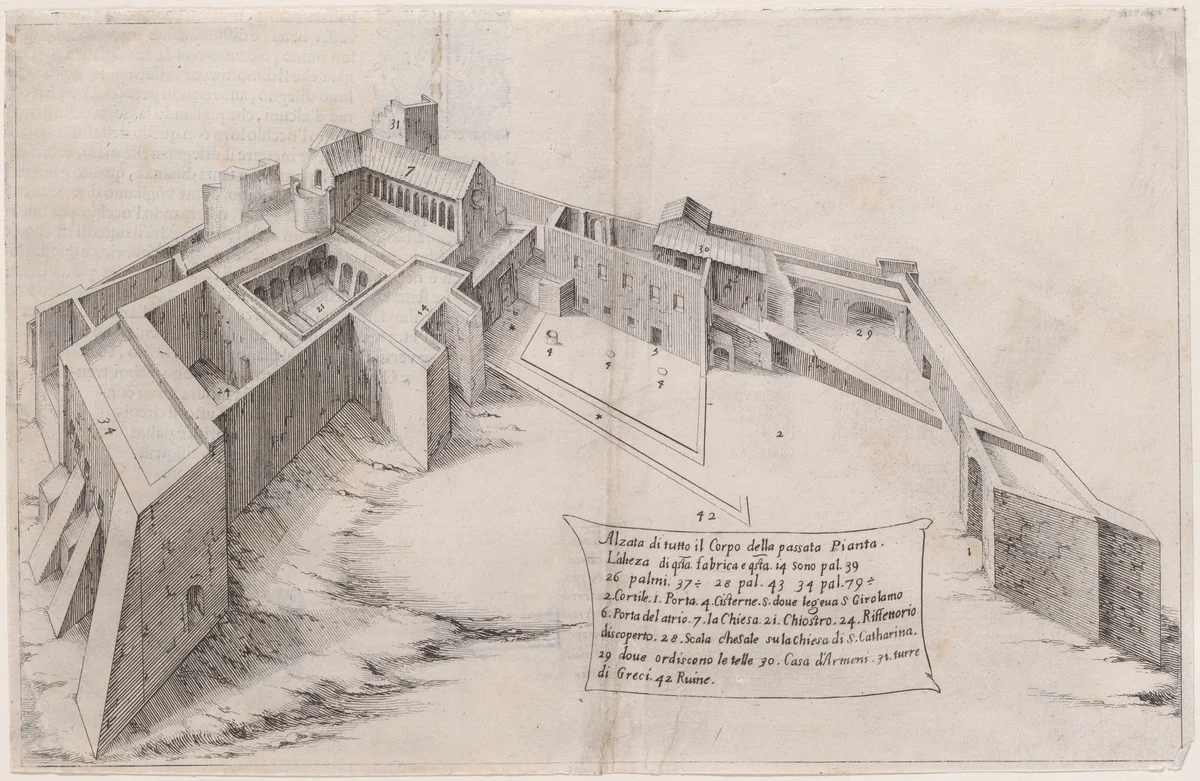 31
7
30
14
21
29
4
5
4
4
24
34
2
42
1
Alzata di tutto il Corpo della passata Pianta.
L'alteza di qsta fabrica e qsta. 14 sono pal. 39
26 palmi. 37÷ 28 pal. 43 34 pal. 79÷
2. Cortile. 1. Porta. 4. Cisterne. 5. doue legeua S Girolamo
6. Porta del atrio. 7. la Chiesa. 21. Chiostro. 24. Riffettorio
discoperto. 28. Scala che sale su la chiesa di S. Catharina.
29 doue ordiscono le telle 30. Casa d'Armeni. 31. turre
di Greci. 42 Ruine.